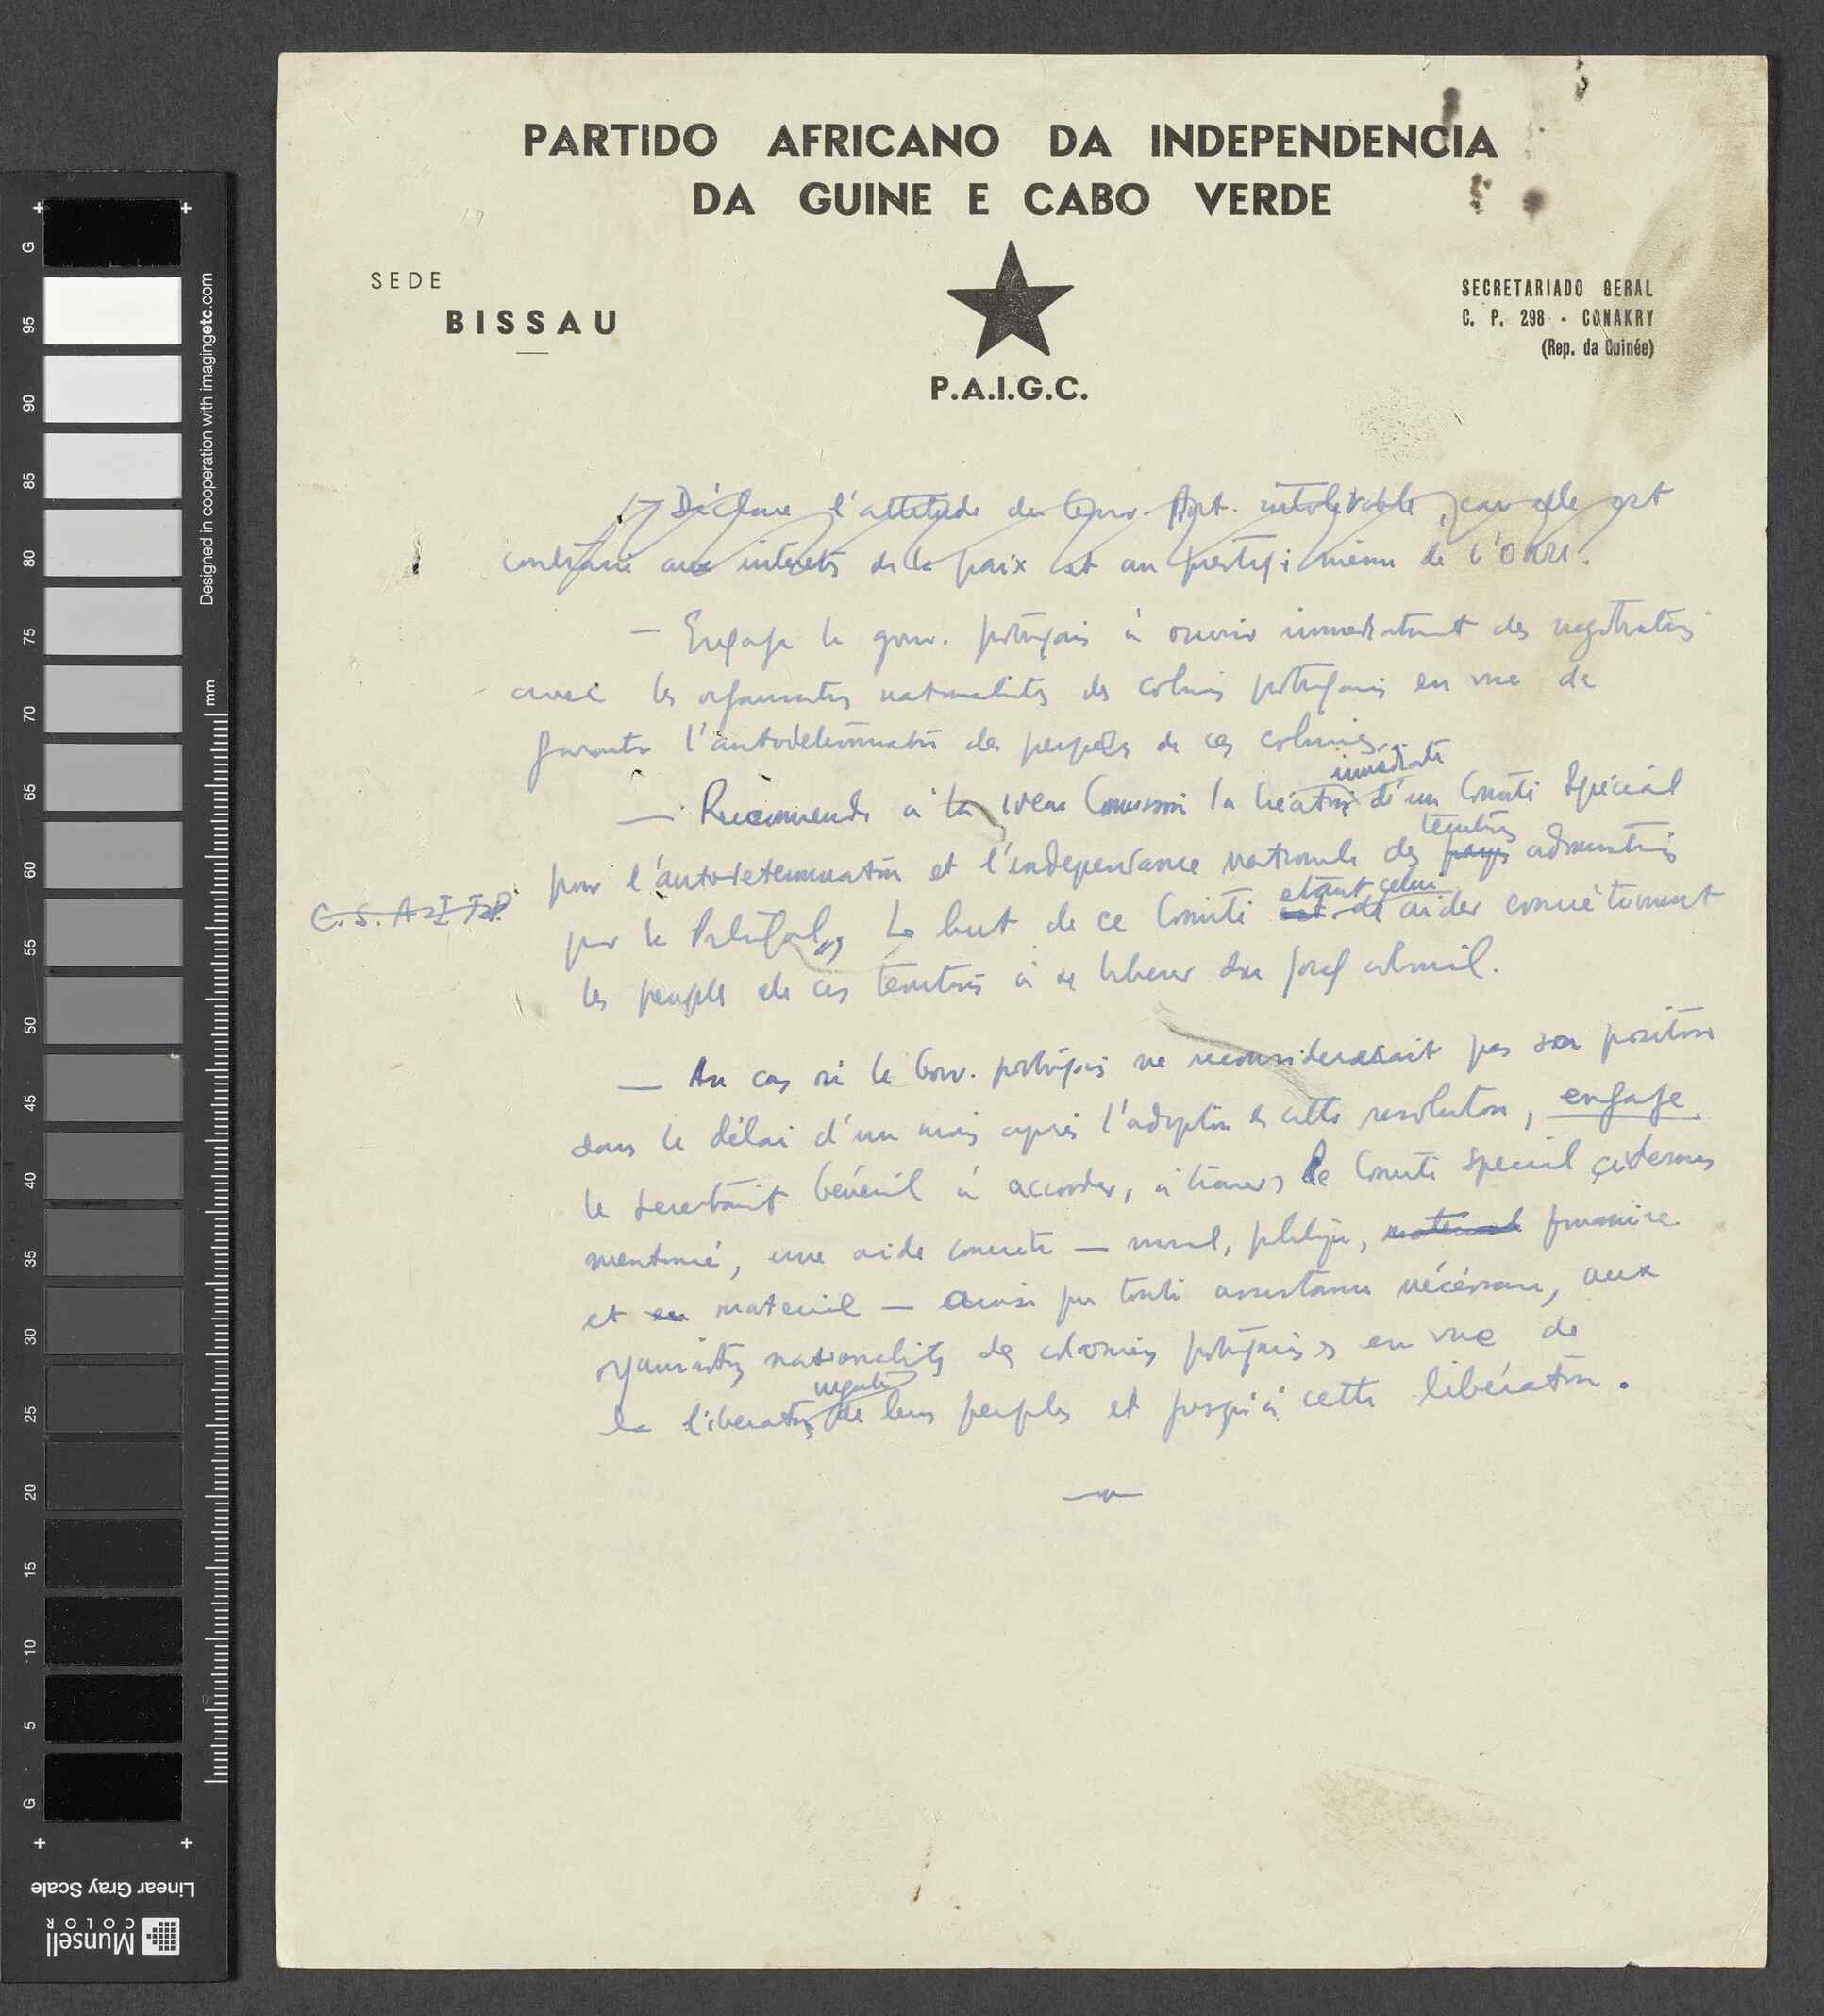 PARTIDO AFRICANO DA INDEPENDENCIA
DA GUINE E CABO VERDE
SEDE
BISSAU
P.A.I.G.C.
SECRETARIADO GERAL
C. P. 298 - CONAKRY
(Rep. da Guinée)
Déclare l'attitude du Gouv. Port. intolérable, car elle est
contraire aux intérêts de la paix et au prestige même de l'ONU.
— Engage le gouv. portugais à ouvrir immediatement des negotiations
avec les organisations nationalistes des colonies portugaises en vue de
garantir l'autodétermination des peuples de ces colonies.
immédiate
— Recommende à la IVème Commission la création d'un Comité Spécial
territoires
pour l'autodetermination et l'independance nationale des pays administrés
C.S.A.I.T.P.
etant celui
par le Portugal, Le but de ce Comité est de aider concrètement
les peuples de ces territoires à se libérer du joug colonial.
— Au cas où le Gouv. portugais ne reconsidererait pas sa position
dans le délai d'un mois après l'adoption de cette resolution, engage
le secretariat Général à accorder, à travers le Comité special ci-dessus
mentionné, une aide concrète — moral, politique, material financière
et en materiel — ainsi que toute assistance nécéssaire, aux
organisations nationalistes des colonies portugaises en vue de
la liberation de leurs peuples et jusqu'à cette libération.